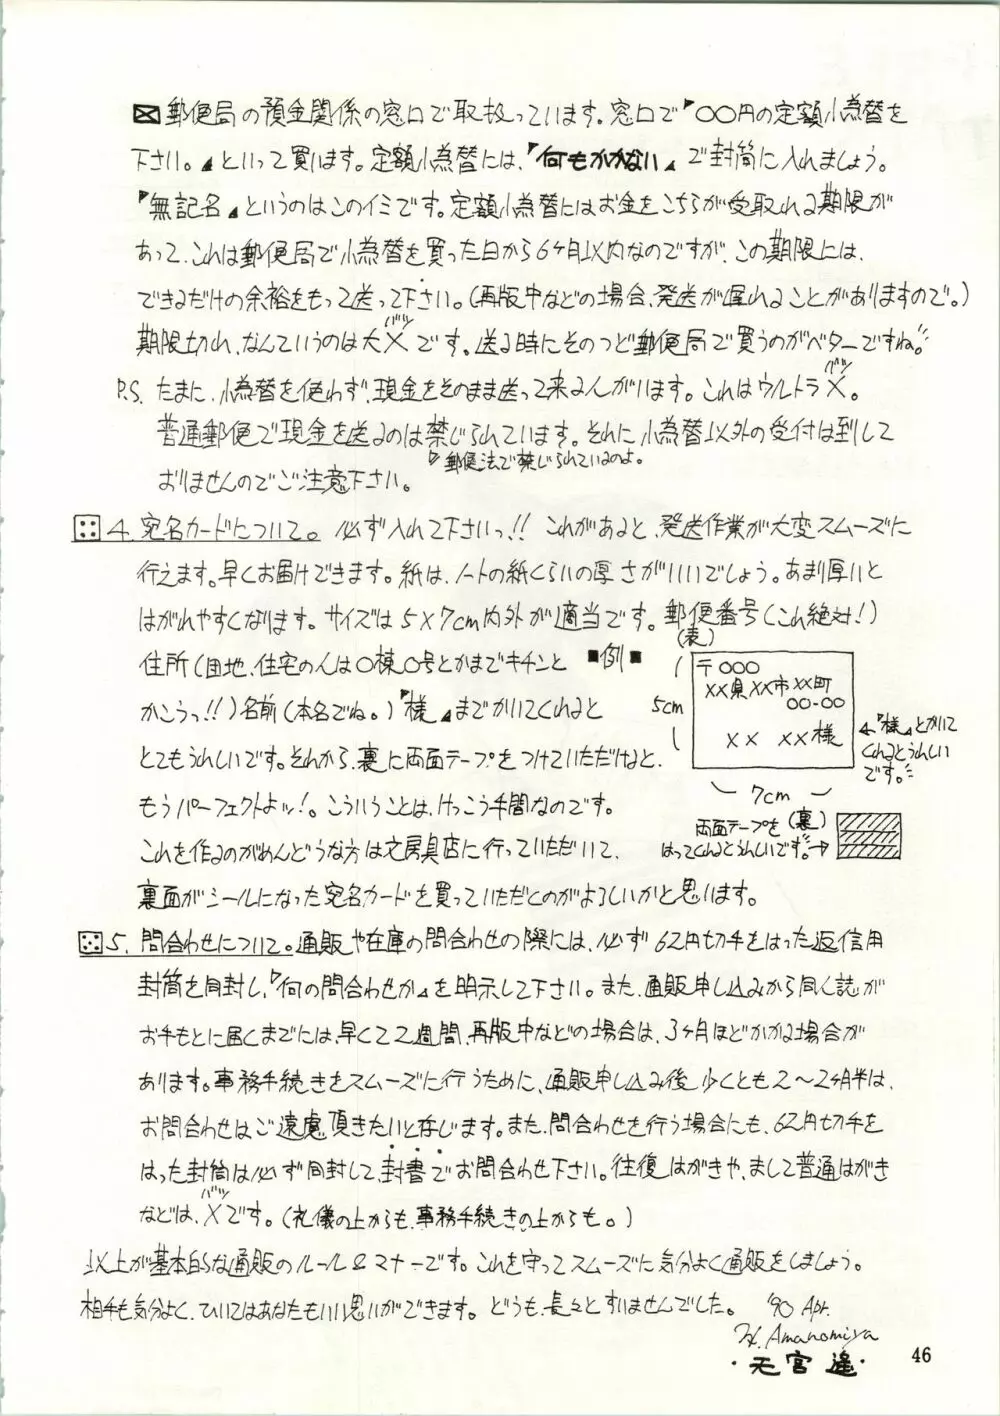 郵便局の預金関係の窓口で取扱っています。窓口で『〇〇円の定額小為替を
下さい。』といって買います。定額小為替には、『何もかかない』で封筒に入れましょう。
『無記名』というのはこのイミです。定額小為替にはお金をこちらが受取れる期限が
あって、これは郵便局で小為替を買った日から6ヶ月以内なのですが、この期限には、
できるだけの余裕をもって送って下さい。(再版中などの場合、発送が遅れることがありますので。)
期限切れ、なんていうのは大×バツです。送る時にそのつど郵便局で買うのがベターですね!
P.S. たまに、小為替を使わず、現金をそのまま送って来る人がいます。これはウルトラ×バツ。
普通郵便で現金を送るのは禁じられています。それに小為替以外の受付は致して
郵便法で禁じられているのよ。
おりませんのでご注意下さい。
4. 宛名カードについて。必ず入れて下さいっ!! これがあると、発送作業が大変スムーズに
行えます。早くお届けできます。紙は、ノートの紙くらいの厚さがいいでしょう。あまり厚いと
はがれやすくなります。サイズは5×7cm内外が適当です。郵便番号(これ絶対!)
住所(団地、住宅の人は〇棟〇号とかまでキチンと
かこうっ!!)名前(本名でね。)『様』までかいてくれると
とてもうれしいです。それから、裏に両面テープをつけていただけると、
もうパーフェクトよッ!。こういうことは、けっこう手間なのです。
これを作るのがめんどうな方は文房具店に行っていただいて、
裏面がシールになった宛名カードを買っていただくのがよろしいかと思います。
■例■
(表)
5cm
〒〇〇〇
××県××市××町
〇〇-〇〇
×× ××様
『様』とかいて
くれるとうれしい
です。
7cm
両面テープを(裏)
はってくれるとうれしいです。→
5. 問合わせについて。通販や在庫の問合わせの際には、必ず62円切手をはった返信用
封筒を同封し、『何の問合わせか』を明示して下さい。また、通販申し込みから同人誌が
お手もとに届くまでには、早くて2週間、再版中などの場合は、3ヶ月ほどかかる場合が
あります。事務手続きをスムーズに行うために、通販申し込み後少くとも2〜2ヶ月半は、
お問合わせはご遠慮頂きたいと存じます。また、問合わせを行う場合にも、62円切手を
はった封筒は必ず同封して、封書でお問合わせ下さい。往復はがきや、まして普通はがき
などは、×バツです。(礼儀の上からも、事務手続きの上からも。)
以上が基本的な通販のルール&マナーです。これを守ってスムーズに気分よく通販をしましょう。
相手も気分よく、ひいてはあなたもいい思いができます。どうも、長々とすいませんでした。 '90 Apr.
H. Amanomiya
・天宮遙・
46